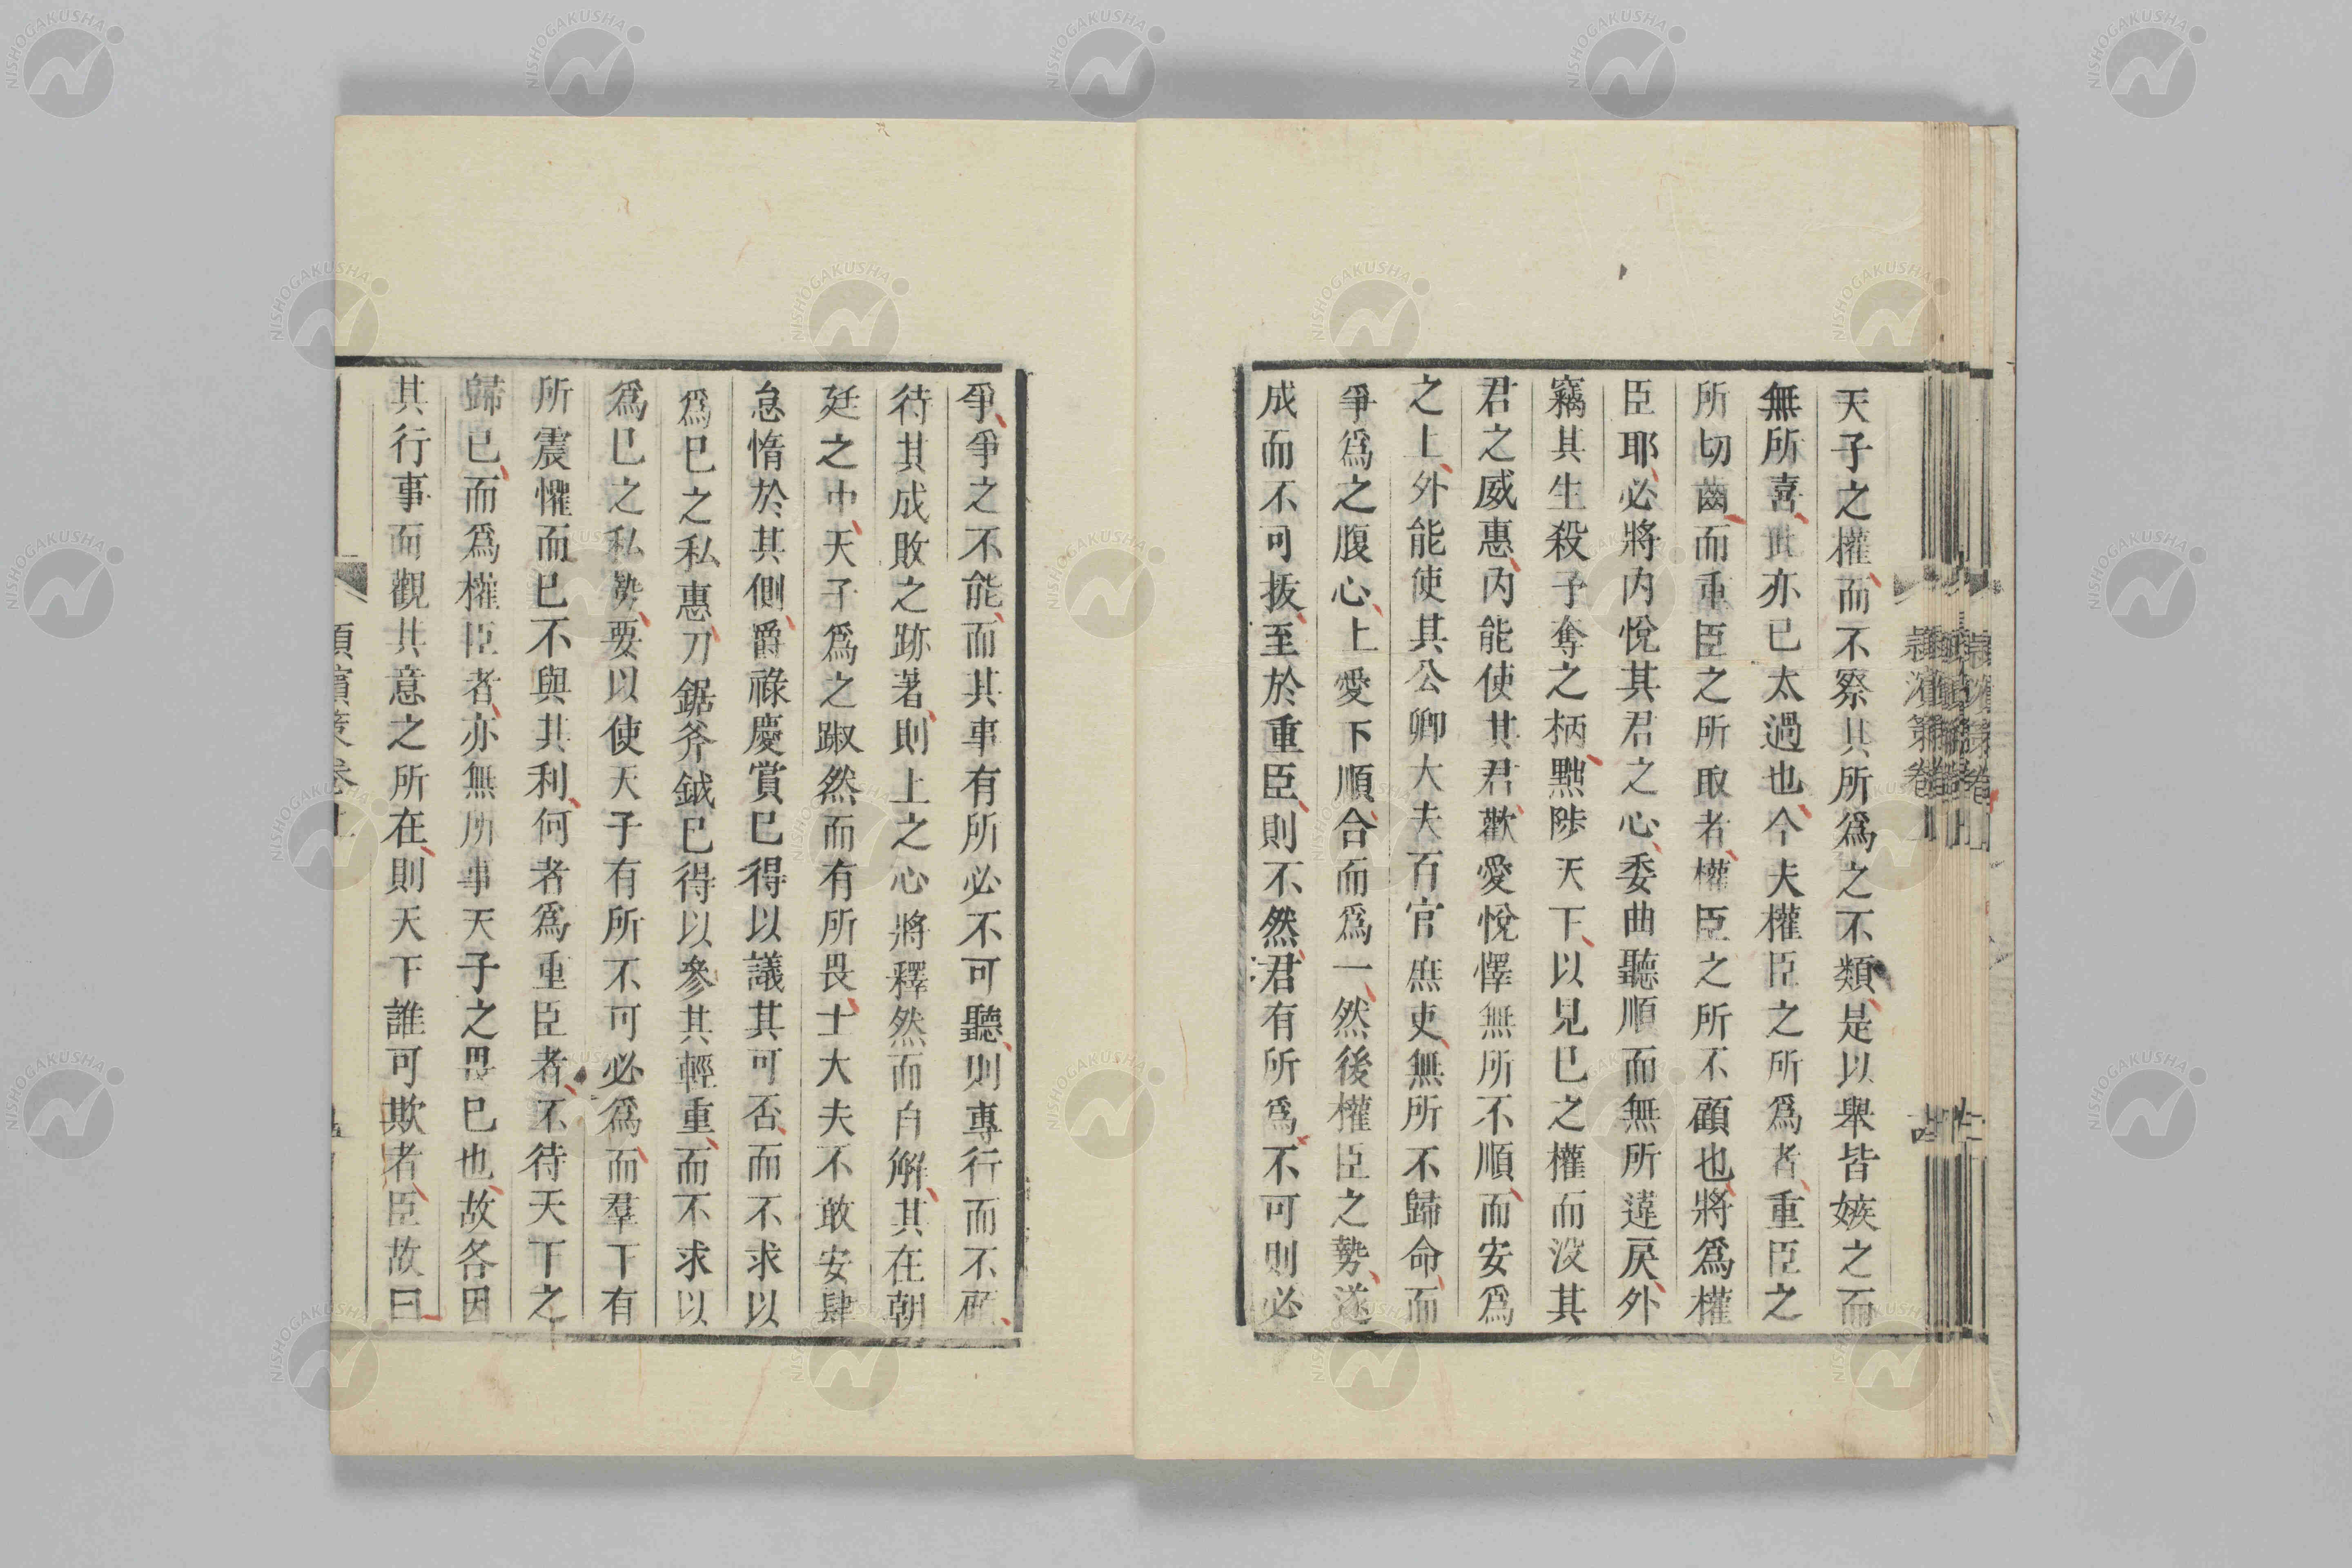 天子之權而不察其所爲之不類是以舉皆嫉之而
無所喜此亦已太過也今夫權臣之所爲者重臣之
所切齒而重臣之所取者權臣之所不顧也將爲權
臣耶必將内悅其君之心委曲聽順而無所違戾外
竊其生殺予奪之柄黜陟天下以見已之權而没其
君之威惠内能使其君歡愛悅懌無所不順而安爲
之上外能使其公卿大夫百官庶吏無所不歸命而
爭爲之腹心上愛下順合而爲一然後權臣之勢遂
成而不可拔至於重臣則不然君有所爲不可則必
爭爭之不能而其事有所必不可聽則專行而不顧
待其成敗之跡著則上之心將釋然而自解其在朝
廷之中天子爲之踧然而有所畏士大夫不敢安肆
怠惰於其側爵祿慶賞已得以議其可否而不求以
爲已之私惠刀鋸斧鉞已得以參其輕重而不求以
爲已之私勢要以使天子有所不可必爲而羣下有
所震懼而已不與其利何者爲重臣者不待天下之
歸已而爲權臣者亦無所事天子之畏已也故各因
其行事而觀其意之所在則天下誰可欺者臣故曰
NISHOGAKUSHA